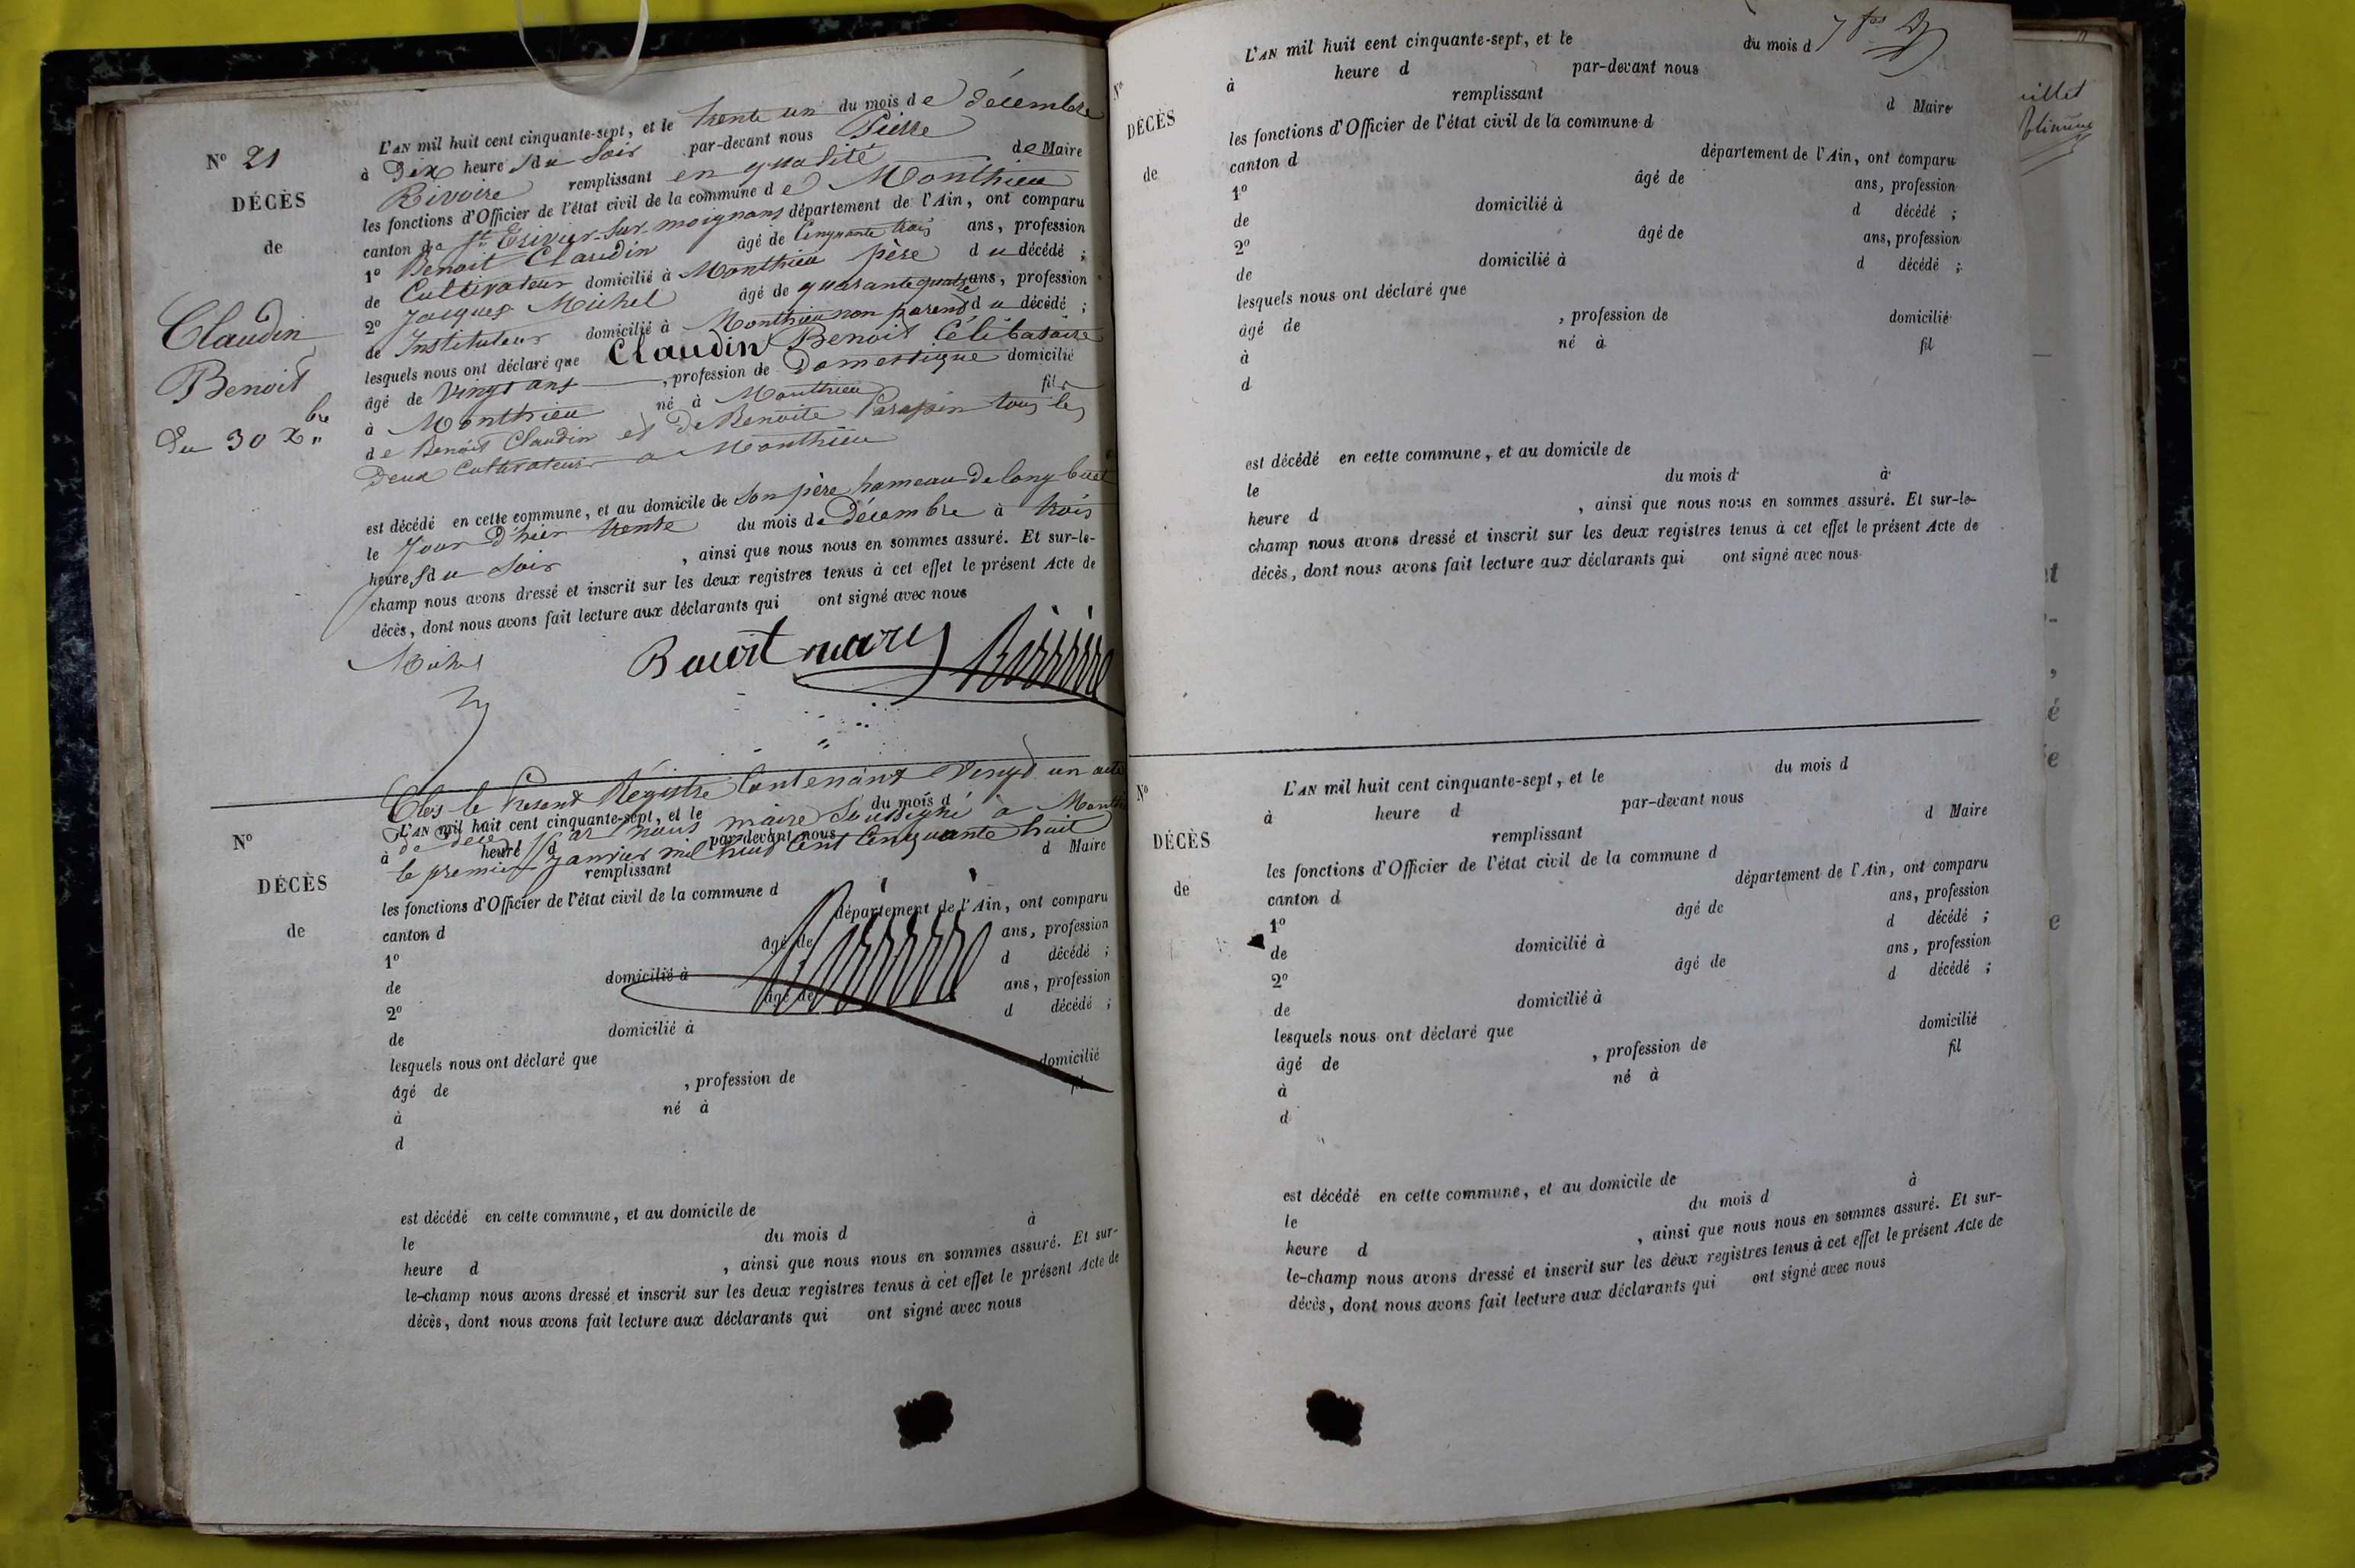 N° 21
DÉCÈS
de
Claudin
Benoit
Du 30 Xbre
L'AN mil huit cent cinquante-sept, et le trente un du mois de décembre
à Dix heures du Soir par-devant nous Pierre
Rivoire remplissant en qualité de Maire
les fonctions d'Officier de l'état civil de la commune de Monthieu
canton de St Trivier-sur-moignans département de l'Ain, ont comparu
1° Benoit Claudin âgé de Cinquante trois ans, profession
de Cultivateur domicilié à Monthieu père du décédé ;
2° Jacques Michel âgé de quarante quatre ans, profession
de Instituteur domicilié à Monthieu non parent du décédé ;
lesquels nous ont déclaré que Claudin Benoit Célibataire
âgé de Vingt ans, profession de Domestique domicilié
à Monthieu né à Monthieu fils
de Benoit Claudin et de Benoite tous les
Deux Cultivateurs a Monthieu
est décédé en cette commune, et au domicile de Son père hameau de
le Jour d'hier trente du mois de Décembre à trois
heures du Soir, ainsi que nous nous en sommes assuré. Et sur-le-
champ nous avons dressé et inscrit sur les deux registres tenus à cet effet le présent Acte de
décès, dont nous avons fait lecture aux déclarants qui ont signé avec nous
Michel
Rivoire
Clos le Présent Régistre Contenant Vingt un acte
de décès Par nous maire Soussigné à Monthieu
le premier Janvier mil huit Cent Cinquante huit
Rivoire
N°
DÉCÈS
de
L'AN mil huit cent cinquante-sept, et le du mois d
à heure d par-devant nous
remplissant d Maire
les fonctions d'Officier de l'état civil de la commune d
canton d département de l'Ain, ont comparu
1° âgé de ans, profession
de domicilié à d décédé ;
2° âgé de ans, profession
de domicilié à d décédé ;
lesquels nous ont déclaré que
âgé de , profession de domicilié
à né à fil
d
est décédé en cette commune, et au domicile de
le du mois d à
heure d , ainsi que nous nous en sommes assuré. Et sur-
le-champ nous avons dressé et inscrit sur les deux registres tenus à cet effet le présent Acte de
décès, dont nous avons fait lecture aux déclarants qui ont signé avec nous
N°
DÉCÈS
de
L'AN mil huit cent cinquante-sept, et le du mois d
à heure d par-devant nous
remplissant d Maire
les fonctions d'Officier de l'état civil de la commune d
canton d département de l'Ain, ont comparu
1° âgé de ans, profession
de domicilié à d décédé ;
2° âgé de ans, profession
de domicilié à d décédé ;
lesquels nous ont déclaré que
âgé de , profession de domicilié
à né à fil
d
est décédé en cette commune, et au domicile de
le du mois d à
heure d , ainsi que nous nous en sommes assuré. Et sur-le-
champ nous avons dressé et inscrit sur les deux registres tenus à cet effet le présent Acte de
décès, dont nous avons fait lecture aux déclarants qui ont signé avec nous
N°
DÉCÈS
de
L'AN mil huit cent cinquante-sept, et le du mois d
à heure d par-devant nous
remplissant d Maire
les fonctions d'Officier de l'état civil de la commune d
canton d département de l'Ain, ont comparu
1° âgé de ans, profession
de domicilié à d décédé ;
2° âgé de ans, profession
de domicilié à d décédé ;
lesquels nous ont déclaré que
âgé de , profession de domicilié
à né à fil
d
est décédé en cette commune, et au domicile de
le du mois d à
heure d , ainsi que nous nous en sommes assuré. Et sur-
le-champ nous avons dressé et inscrit sur les deux registres tenus à cet effet le présent Acte de
décès, dont nous avons fait lecture aux déclarants qui ont signé avec nous